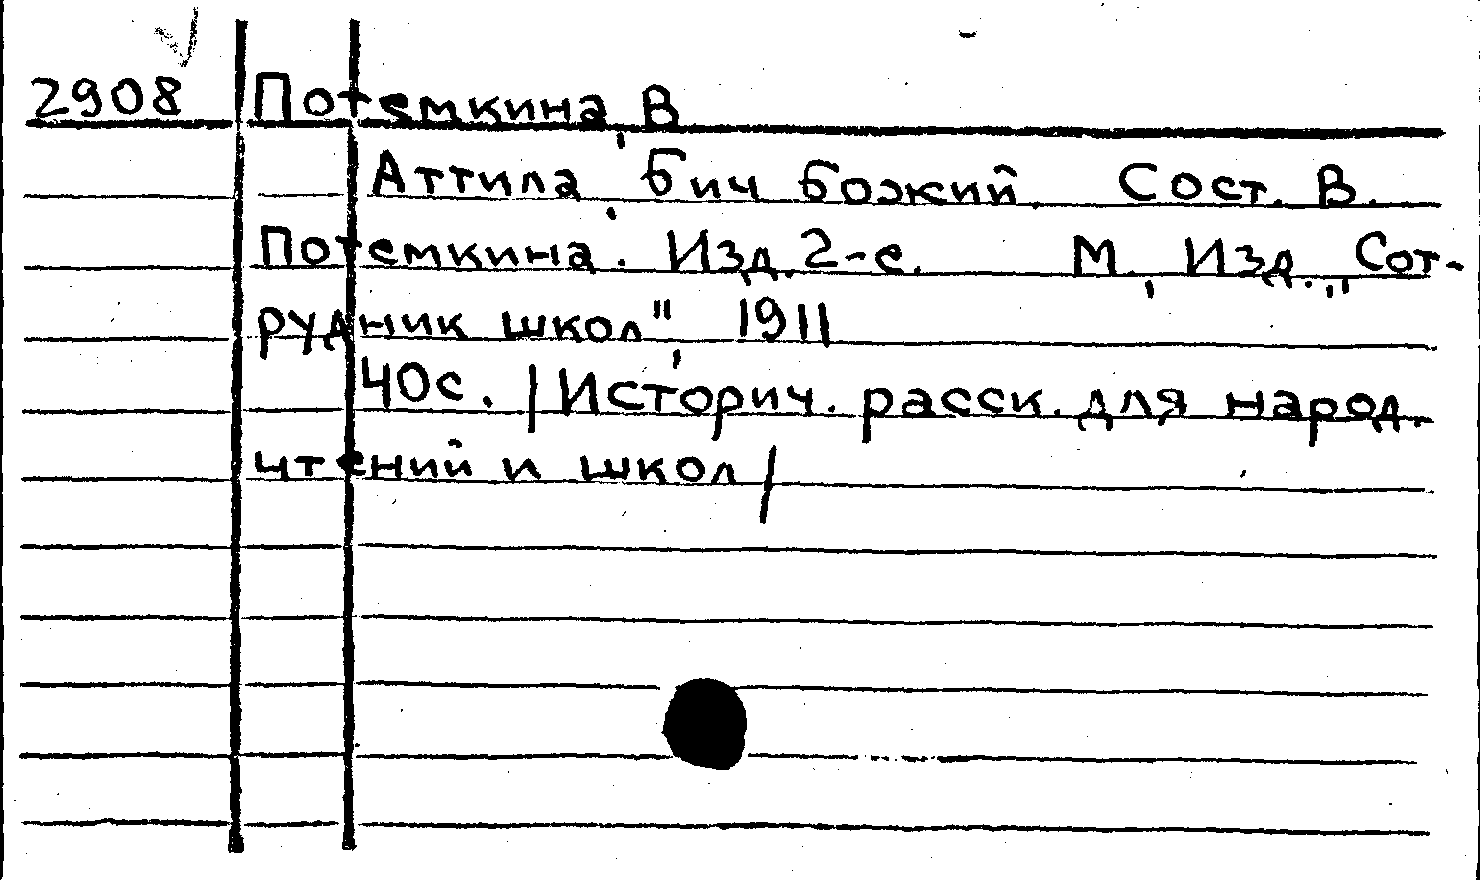 2908 Потемкина, В
Аттила, бич божий. Сост. В.
Потемкина. Изд. 2-е. М., Изд. „Сот-
рудник школ", 1911
40с. /Историч. расск. для народ.
чтений и школ/